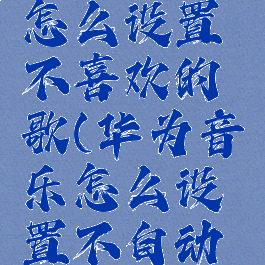 怎么设置
不喜欢的
歌(华为音
乐怎么设
置不自动